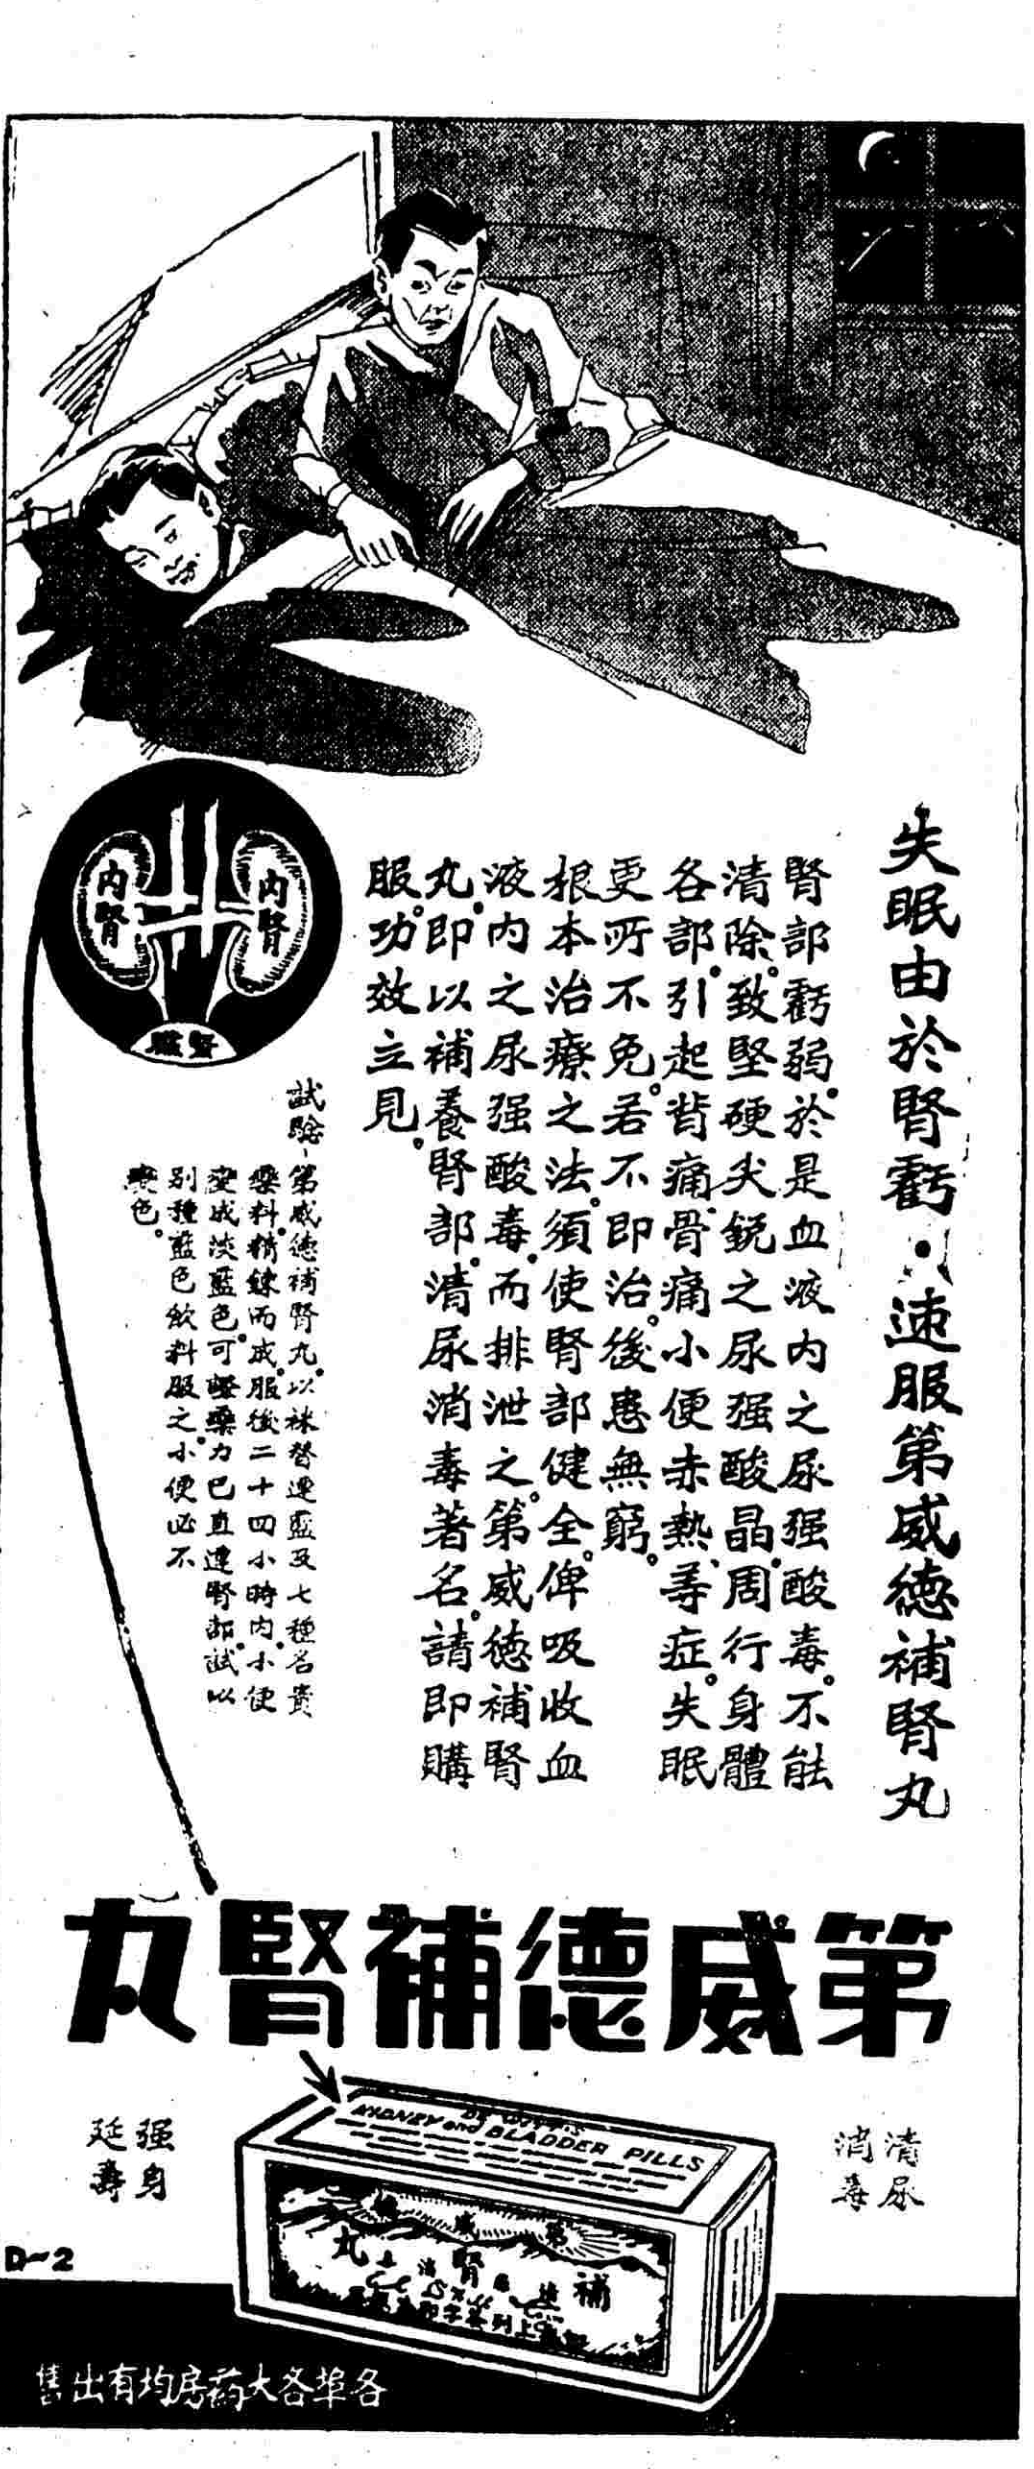 失眠由於腎虧·速服第威德補腎丸
腎部虧弱。於是血液内之尿强酸毒。不能
清除。致堅硬尖銳之尿强酸晶。周行身體
各部。引起背痛、骨痛小便赤熱、等症。失眠
更所不免。若不即治。後患無窮。
根本治療之法。須使腎部健全。俾吸收血
液内之尿强酸毒。而排泄之。第威德補腎
丸。即以補養腎部。清尿消毒著名。請即購
服。功效立見。
内腎
内腎
試驗
第威德補腎丸。以袜替連藍及七種名貴
藥料。精鍊而成。服後二十四小時内。小便
變成淡藍色。可證藥力已直達腎部。試以
别種藍色飲料服之。小便必不
變色。
第威德補腎丸
清尿
消毒
强身
延壽
DE WITT'S
KIDNEY and BLADDER PILLS
補腎丸
D-2
各埠各大葯房均有出售